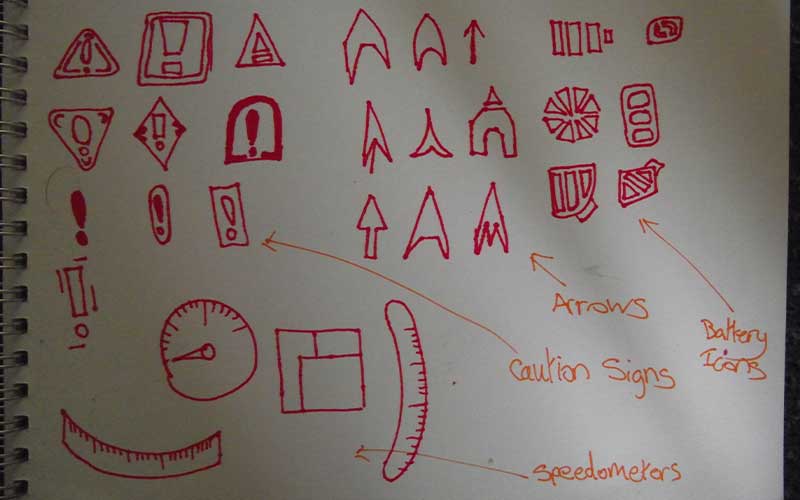 Arrows
Battery
Icons
Caution Signs
Speedometers